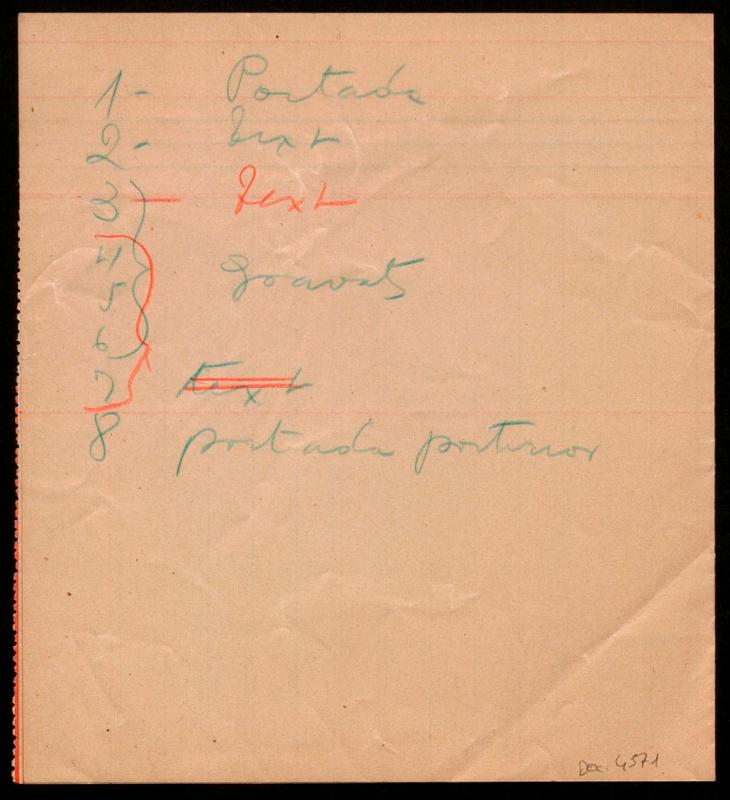 1- Portada
2- Text
3 — Text
4
5 Gravats
6
7 text
8 portada posterior
Doc. 4571